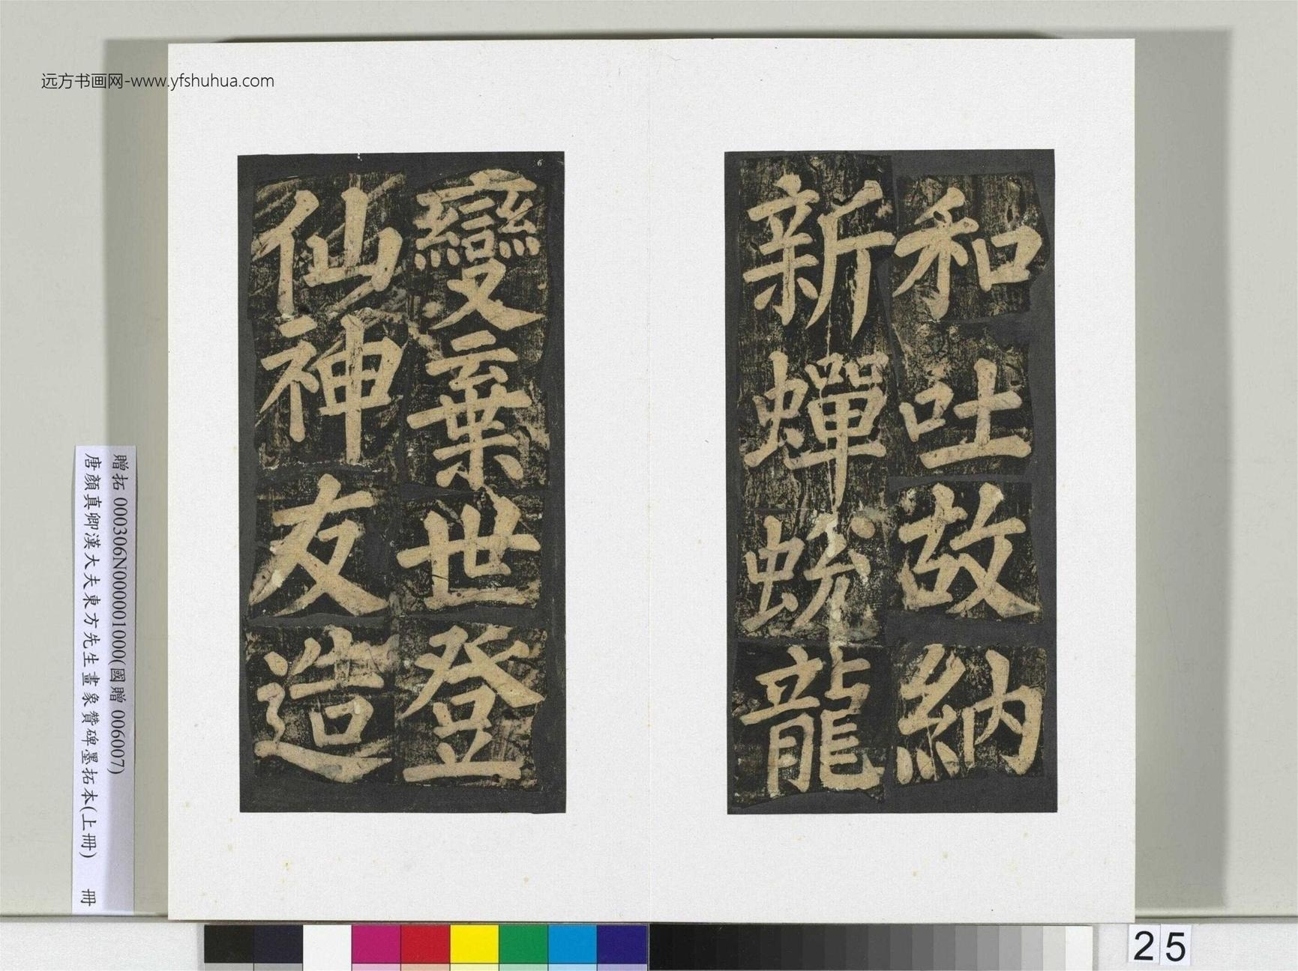 远方书画网-www.yfshuhua.com
和吐故納
新蟬蛻龍
變棄世登
仙神友造
贈拓 000306N000001000(國贈 006007)
唐顏真卿漢大夫東方先生畫象贊碑墨拓本(上冊) 冊
25